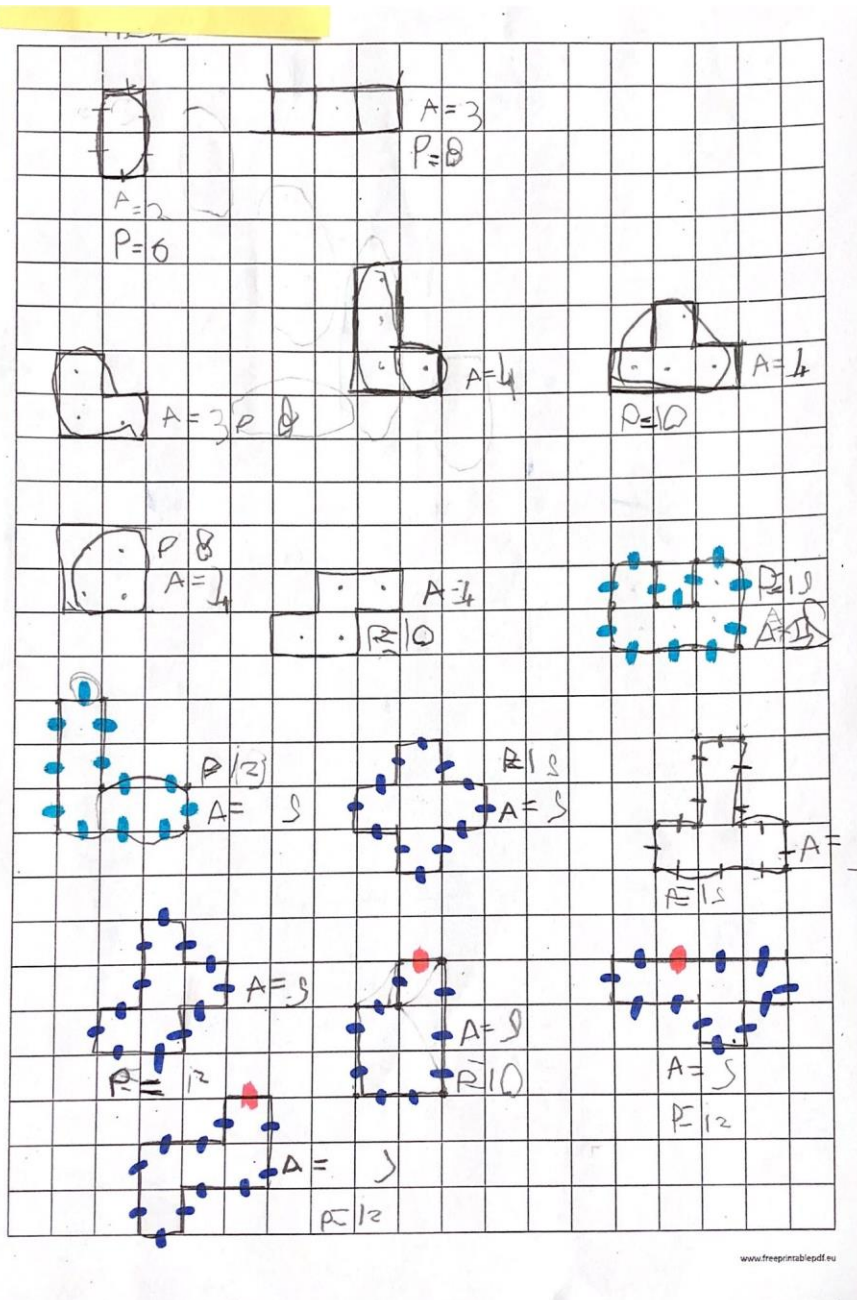 A=3
P=8
A=2
P=6
A=4
A=4
P=10
A=3 P 8
P 8
A=4
A=4
P=10
P=12
A=
A= 5
P=12
A= 5
A=
P=12
A=5
P= 12
A=5
P=10
A=5
P=12
A= 5
P=12
www.freeprintablepdf.eu